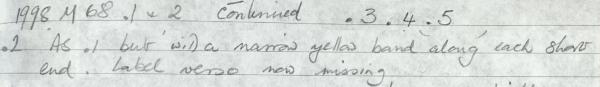 1998 M 68 .1 & 2 Continued .3 .4 .5
.2 As .1 but with a narrow yellow band along each short
end. Label verso now missing